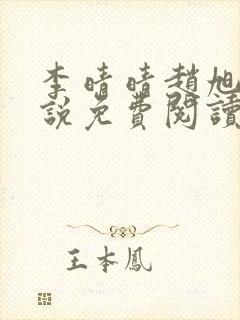 李晴晴趙旭
說免費閱讀
王本鳳